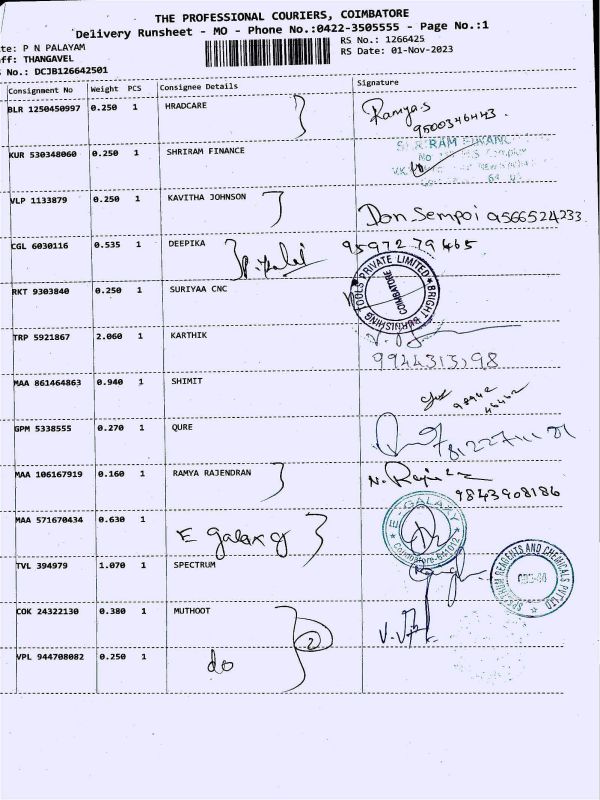 THE PROFESSIONAL COURIERS, COIMBATORE
Delivery Runsheet - MO - Phone No.:0422-3505555 - Page No.:1
te: P N PALAYAM RS No.: 1266425
ff: THANGAVEL RS Date: 01-Nov-2023
S No.: DCJB126642501
Consignment No Weight PCS Consignee Details Signature
BLR 1250450997 0.250 1 HRADCARE Ramya.s
9500346443.
KUR 530348060 0.250 1 SHRIRAM FINANCE
VLP 1133879 0.250 1 KAVITHA JOHNSON Don Sempoi 9566524233
CGL 6030116 0.535 1 DEEPIKA 9597279465
RKT 9303840 0.250 1 SURIYAA CNC BRIGHT BURNISHING TOOLS PRIVATE LIMITED COIMBATORE
TRP 5921867 2.060 1 KARTHIK
MAA 861464863 0.940 1 SHIMIT
GPM 5338555 0.270 1 QURE
MAA 106167919 0.160 1 RAMYA RAJENDRAN
9843908186
MAA 571670434 0.630 1 E galaxy E-GALAXY Coimbatore-641012
TVL 394979 1.070 1 SPECTRUM SPECTRUM REAGENTS AND CHEMICALS PVT LTD
COK 24322130 0.380 1 MUTHOOT 2
VPL 944708082 0.250 1 do